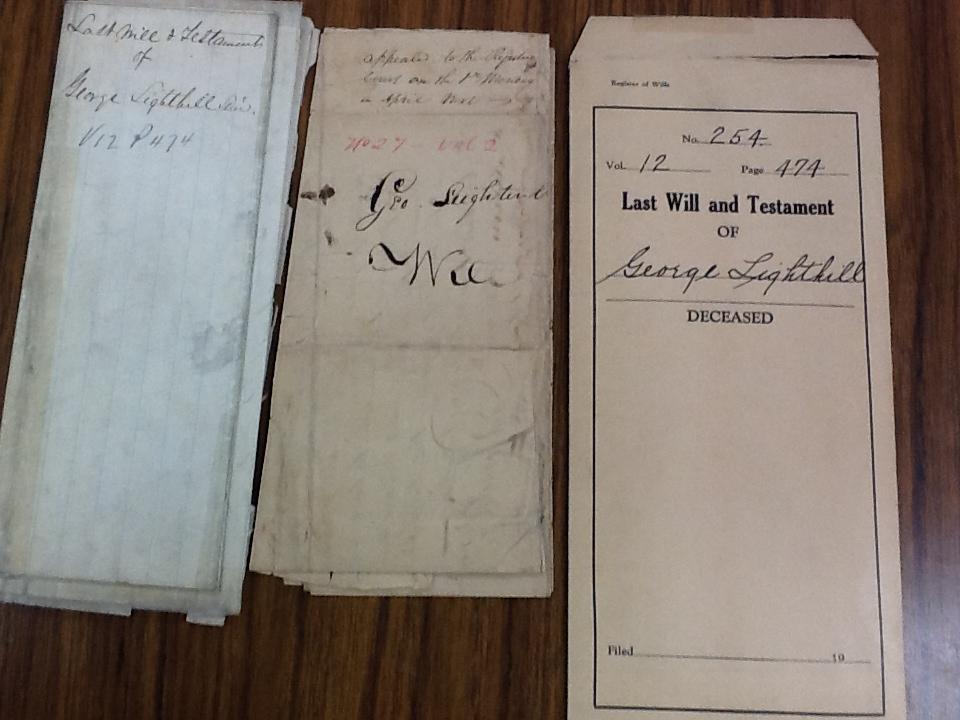 Last Will & Testament
of
George Lighthill Sen.
V12 P474
appealed to the Register
Court on the 1st Monday
in April
No 27 Vol 2
Geo Leightill
Will
Register of Wills
No. 254
Vol. 12 Page 474
Last Will and Testament
OF
George Lighthill
DECASED
Filed 19